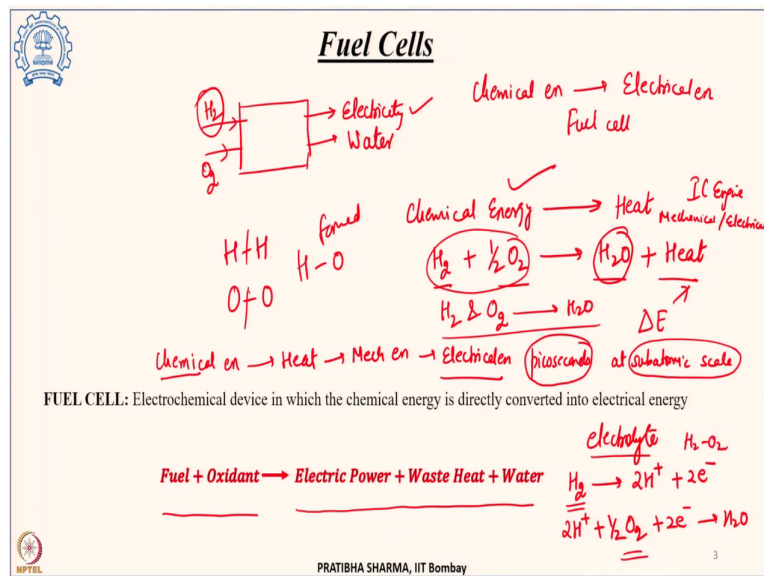 Fuel Cells
H₂
O₂
Electricity ✓
Water
Chemical en → Electrical en
Fuel cell
Chemical Energy → Heat
IC Engine
Mechanical/Electrical
H-H
O-O
formed
H-O
H₂ + ½O₂ → H₂O + Heat
H₂ & O₂ → H₂O
ΔE
Chemical en → Heat → Mech en → Electrical en picoseconds at subatomic scale
FUEL CELL: Electrochemical device in which the chemical energy is directly converted into electrical energy
Fuel + Oxidant → Electric Power + Waste Heat + Water
electrolyte H₂-O₂
H₂ → 2H⁺ + 2e⁻
2H⁺ + ½O₂ + 2e⁻ → H₂O
NPTEL
PRATIBHA SHARMA, IIT Bombay
3